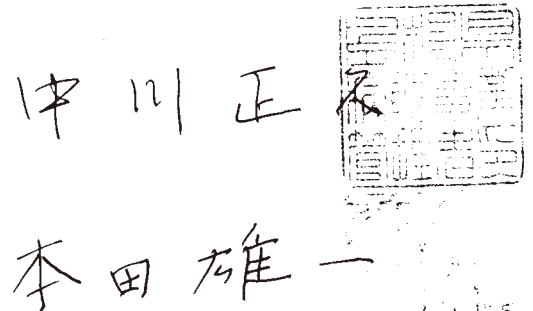 中川正
本田雄一